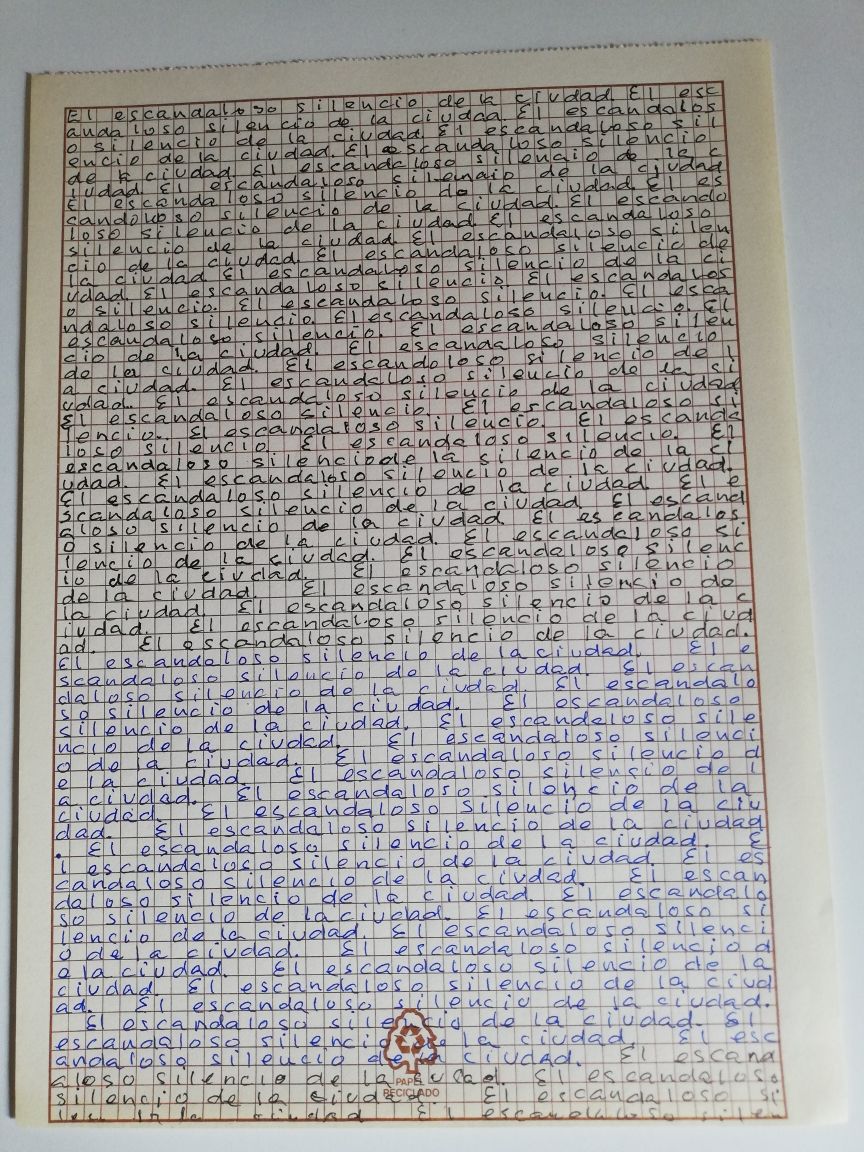 El escandaloso silencio de la ciudad. El esc
andaloso silencio de la ciudad. El escandalos
o silencio de la ciudad. El escandaloso sil
encio de la ciudad. El escandaloso silencio
de la ciudad. El escandaloso silencio de la c
iudad. El escandaloso silencio de la ciudad
El escandaloso silencio de la ciudad. El es
candoloso silencio de la ciudad. El escando
loso silencio de la ciudad. El escandaloso
silencio de la ciudad. El escandaloso silen
cio de la ciudad. El escandaloso silencio de
la ciudad. El escandaloso silencio de la ci
udad. El escandaloso silencio. El escandalos
o silencio. El escandaloso silencio. El esca
ndaloso silencio. El escandaloso silencio. El
escandaloso silencio. El escandaloso silen
cio de la ciudad. El escandaloso silencio
de la ciudad. El escandoloso silencio de l
a ciudad. El escandaloso silencio de la si
udad. El escandaloso silencio de la ciudad
El escandaloso silencio. El escandaloso si
lencio. El escandaloso silencio. El escanda
loso silencio. El escandaloso silencio. El
escandaloso silenciode la silencio de la ci
udad. El escandaloso silencio de la ciudad.
El escandaloso silencio de la ciudad. El e
scandaloso silencio de la ciudad. El escand
aloso silencio de la ciudad. El escandalos.
o silencio de la ciudad. El escandaloso si
lencio de la ciudad. El escandaloso silenc
io de la ciudad. El escandaloso silencio
de la ciudad. El escandaloso silencio de
la ciudad. El escandaloso silencio de la c
iudad. El escandaloso silencio de la ciud
ad. El escandaloso silencio de la ciudad.
El escandaloso silencio de la ciudad. El e
scandaloso silencio de la ciudad. El escan
daloso silencio de la ciudad. El escandalo
so silencio de la ciudad. El escandaloso
silencio de la ciudad. El escandaloso sile
ncio de la ciudad. El escandaloso silenci
o de la ciudad. El escandaloso silencio d
e la ciudad. El escandaloso silencio de l
a ciudad. El escandaloso silencio de la
ciudad. El escandaloso silencio de la ciu
dad. El escandaloso silencio de la ciudad
. El escandaloso silencio de la ciudad. E
l escandaloso silencio de la ciudad. El es
candaloso silencio de la ciudad. El escan
daloso silencio de la ciudad. El escandalo
so silencio de la ciudad. El escandaloso si
lencio de la ciudad. El escandaloso silenci
o de la ciudad. El escandaloso silencio d
e la ciudad. El escandaloso silencio de la
ciudad. El escandaloso silencio de la ciud
ad. El escandaloso silencio de la ciudad.
El escandaloso silencio de la ciudad. El
escandaloso silencio de la ciudad. El esc
andaloso silencio de la ciudad. El escand
aloso silencio de la ciudad. El escandaloso
silencio de la ciudad. El escandaloso si
la ciudad El escandaloso silen
PAPEL
RECICLADO